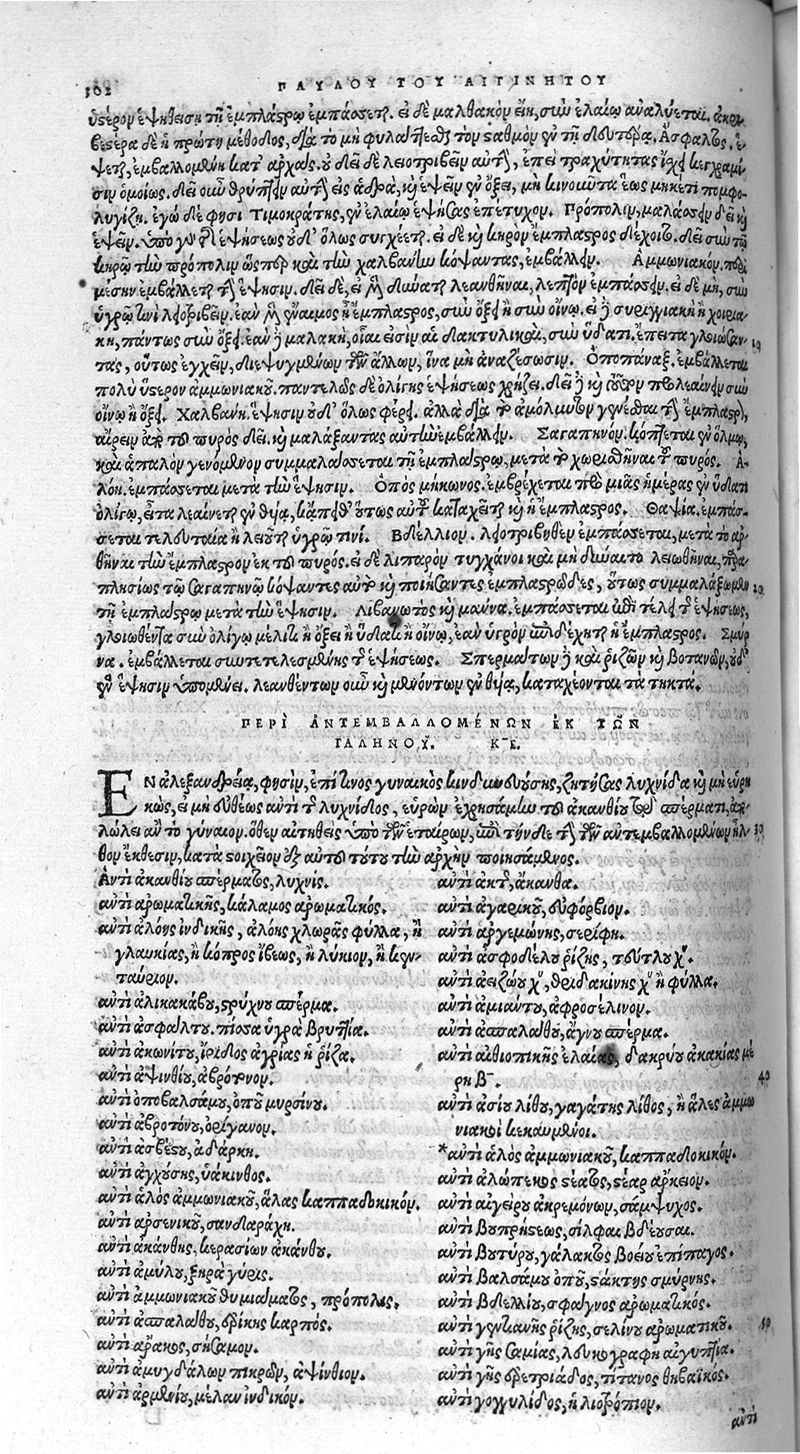 302
ΠΑΥΛΟΥ ΤΟΥ ΑΙΓΙΝΗΤΟΥ
ὕστερον ἑψηθείσῃ τῇ ἐμπλάστρῳ ἐμπάσσεται. εἰ δὲ μαλθακὸν εἴη, σὺν ἐλαίῳ ἀναλύεται. ἀκρι-
βεστέρα δὲ ἡ πρώτη μέθοδος, διὰ τὸ μὴ φυλάττεσθαι τὸν σταθμὸν ἐν τῇ δευτέρᾳ. Ἄσφαλτος, ἕ-
ψεται, ἐμβαλλομένη κατ' ἀρχάς. οὐ δεῖ δὲ λειοτριβεῖν αὐτὴν, ἐπεὶ τραχύτητας ἴσχει κεγχραμί-
σιν ὁμοίως. δεῖ οὖν θρύπτειν αὐτὴν εἰς ἁδρὰ, καὶ ἕψειν ἐν ὄξει, μὴ κινοῦντα ἕως μηκέτι πομφο-
λυγίζῃ. ἐγὼ δέ φησι Τιμοκράτης, ἐν ἐλαίῳ ἑψήσας ἐπέτυχον. Πρόπολιν, μαλάσσειν δεῖ καὶ
ἕψειν. ὑπὸ γὰρ τῆς ἑψήσεως οὐδ' ὅλως συγχέεται. εἰ δὲ καὶ κηρὸν ἔμπλαστρος δέχοιτο. δεῖ σὺν τῷ
κηρῷ τὴν πρόπολιν ὥσπερ καὶ τὴν χαλβάνην κόψαντας, ἐμβάλλειν. Ἀμμωνιακόν. περὶ
μέσην ἐμβάλλεται τὴν ἕψησιν. δεῖ δὲ, εἰ μὲν δύναται λεανθῆναι, λεπτὸν ἐμπάσσειν. εἰ δὲ μὴ, σὺν
ὑγρῷ τινὶ λειοτριβεῖν. ἐὰν μὲν ἔναιμος ᾖ ἡ ἔμπλαστρος, σὺν ὄξει ἢ σὺν οἴνῳ. εἰ δὲ συριγγιακὴ ἢ χοιρα-
κὴ, πάντως σὺν ὄξει. ἐὰν δὲ μαλακὴ, οἷαι εἰσὶν αἱ δακτυλικαὶ, σὺν ὕδατι. ἔπειτα γλοιώσαν- 10
τας, οὕτως ἐγχεῖν, διεψυγμένων τῶν ἄλλων, ἵνα μὴ ἀναζέσωσιν. Ὀποπάναξ. ἐμβάλλεται
πολὺ ὕστερον ἀμμωνιακοῦ. παντελῶς δὲ ὀλίγης ἑψήσεως χρῄζει. δεῖ δὲ καὶ τοῦτον προλεαίνειν σὺν
οἴνῳ ἢ ὄξει. Χαλβάνη. ἕψησιν οὐδ' ὅλως φέρει. ἀλλὰ διὰ τὸ ἀμόλυντον γενέσθαι τὴν ἔμπλαστρον,
αἴρειν ἀπὸ τοῦ πυρὸς δεῖ. καὶ μαλάξαντας αὐτὴν ἐμβάλλειν. Σαγαπηνόν. κόπτεται ἐν ὅλμῳ,
καὶ ἁπαλὸν γενόμενον συμμαλάσσεται τῇ ἐμπλάστρῳ, μετὰ τὸ χωρισθῆναι τοῦ πυρός. Ἀ-
λόη. ἐμπάσσεται μετὰ τὴν ἕψησιν. Ὀπὸς μήκωνος. ἐμβρέχεται πρὸ μιᾶς ἡμέρας ἐν ὕδατι
ὀλίγῳ, εἶτα λεαίνεται ἐν θυίᾳ, κἄπειθ' οὕτως αὐτοῦ καταχεῖται καὶ ἡ ἔμπλαστρος. Θαψία. ἐμπάσ-
σεται τελευταία ἢ λειοῦται ὑγρῷ τινί. Βδέλλιον. λειοτριβηθὲν ἐμπάσσεται, μετὰ τὸ ἀρ-
θῆναι τὴν ἔμπλαστρον ἐκ τοῦ πυρός. εἰ δὲ λιπαρὸν τυγχάνοι καὶ μὴ δύναιτο λειωθῆναι, παρα-
πλησίως τῷ σαγαπηνῷ κόψαντες αὐτὸ καὶ ποιήσαντες ἐμπλαστρῶδες, οὕτως συμμαλάξωμεν 20
τῇ ἐμπλάστρῳ μετὰ τὴν ἕψησιν. Λιβανωτὸς καὶ μάννα. ἐμπάσσεται ἐπὶ τέλει τῆς ἑψήσεως,
γλοιωθέντα σὺν ὀλίγῳ μέλιτι ἢ ὄξει ἢ ὕδατι ἢ οἴνῳ, ἐὰν ὑγρὸν ἐπιδέχηται ἡ ἔμπλαστρος. Σμύρ
να. ἐμβάλλεται συντετελεσμένης τῆς ἑψήσεως. Σπερμάτων δὲ καὶ ῥιζῶν καὶ βοτανῶν, οὐδ'
ἓν ἕψησιν ὑπομένει. λεανθέντων οὖν καὶ μενόντων ἐν θυίᾳ, καταχέονται τὰ τηκτά.
ΠΕΡῚ ἈΝΤΕΜΒΑΛΛΟΜΈΝΩΝ ἘΚ ΤΩ͂Ν
ΓΑΛΗΝΟΥ͂. ΚΕ.
ἘΝ ἀλεξανδρείᾳ, φησὶν, ἐπί τινος γυναικὸς κινδυνευούσης, ζητήσας λυχνίδα καὶ μὴ εὑρη
κὼς, εἰ μὴ εὐθέως ἀντὶ τῆς λυχνίδος, εὑρὼν ἐχρησάμην τοῦ ἀκανθίου τῷ σπέρματι, ἀπ-
λώλει ἂν τὸ γύναιον. ὅθεν αἰτηθεὶς ὑπὸ τῶν ἑταίρων, ἐπὶ τήνδε τὴν τῶν ἀντεμβαλλομένων ἦλ- 30
θον ἔκθεσιν, κατὰ στοιχεῖον ἐξ αὐτοῦ τούτου τὴν ἀρχὴν ποιησάμενος.
Ἀντὶ ἀκανθίου σπέρματος, λυχνίς.
ἀντὶ ἀρωματικῆς, κάλαμος ἀρωματικός.
ἀντὶ ἀλόης ἰνδικῆς, ἀλόης χλωρᾶς φύλλα, ἢ
γλαυκίας, ἢ κόπρος ἴβεως, ἢ λύκιον, ἢ κεν-
ταύριον.
ἀντὶ ἁλικακάβου, στρύχνου σπέρμα.
ἀντὶ ἀσφάλτου, πίσσα ὑγρὰ βρυττία.
ἀντὶ ἀκονίτου, ἴριδος ἀγρίας ἡ ῥίζα.
ἀντὶ ἀψινθίου, ἀβρότονον.
ἀντὶ ὀποβαλσάμου, ὀποῦ μυρσίνου.
ἀντὶ ἀβροτόνου, ὀρίγανον.
ἀντὶ ἀσβέστου, ἀδάρκη.
ἀντὶ ἀγχούσης, ὑάκινθος.
ἀντὶ ἁλὸς ἀμμωνιακοῦ, ἅλας καππαδοκικόν.
ἀντὶ ἀρσενικοῦ, σανδαράχη.
ἀντὶ ἀκάνθης, κερασίων ἀκάνθου.
ἀντὶ ἀμύλου, ξηρὰ γύρις.
ἀντὶ ἀμμωνιακοῦ θυμιάματος, πρόπολις.
ἀντὶ ἀσπαλάθου, ἐρείκης καρπός.
ἀντὶ ἀράκος, σήσαμον.
ἀντὶ ἀμυγδάλων πικρῶν, ἀψίνθιον.
ἀντὶ ἀρμενίου, μέλαν ἰνδικόν.
ἀντὶ ἀκτῆς, ἄκανθα.
ἀντὶ ἀγαρικοῦ, εὐφόρβιον.
ἀντὶ ἀργεμώνης, σερίφη.
ἀντὶ ἀσφοδέλου ῥίζης, τεύτλου χυλός.
ἀντὶ ἀειζώου χυλοῦ, θριδακίνης χυλὸς ἢ φύλλα.
ἀντὶ ἀμιάντου, ἀφροσέλινον.
ἀντὶ ἀσπαλάθου, ἄγνου σπέρμα.
ἀντὶ αἰθιοπικῆς ἐλαίας, δακρύου ἀκακίας μέ
ρη β. 40
ἀντὶ ἀσίου λίθου, γαγάτης λίθος, ἢ ἅλες ἀμμω
νιακοὶ κεκαυμένοι.
*ἀντὶ ἁλὸς ἀμμωνιακοῦ, καππαδοκικόν.
ἀντὶ ἀλώπεκος στέατος, στέαρ ἄρκειον.
ἀντὶ αἰγείρου ἀκρεμόνων, σάμψυχος.
ἀντὶ βουπρήστεως, σίλφαι βδέουσαι.
ἀντὶ βουτύρου, γάλακτος βοείου ἐπίπαγος.
ἀντὶ βαλσάμου ὀποῦ, στάκτης σμύρνης.
ἀντὶ βδελλίου, σφάγνος ἀρωματικός.
ἀντὶ γεντιανῆς ῥίζης, σελίνου ἀρωματικοῦ. 50
ἀντὶ γῆς σαμίας, λευκογραφὴ αἰγυπτία.
ἀντὶ γῆς ἐρετριάδος, τίτανος θηβαϊκός.
ἀντὶ γογγυλίδος, ἡλιοτρόπιον.
ἀντὶ